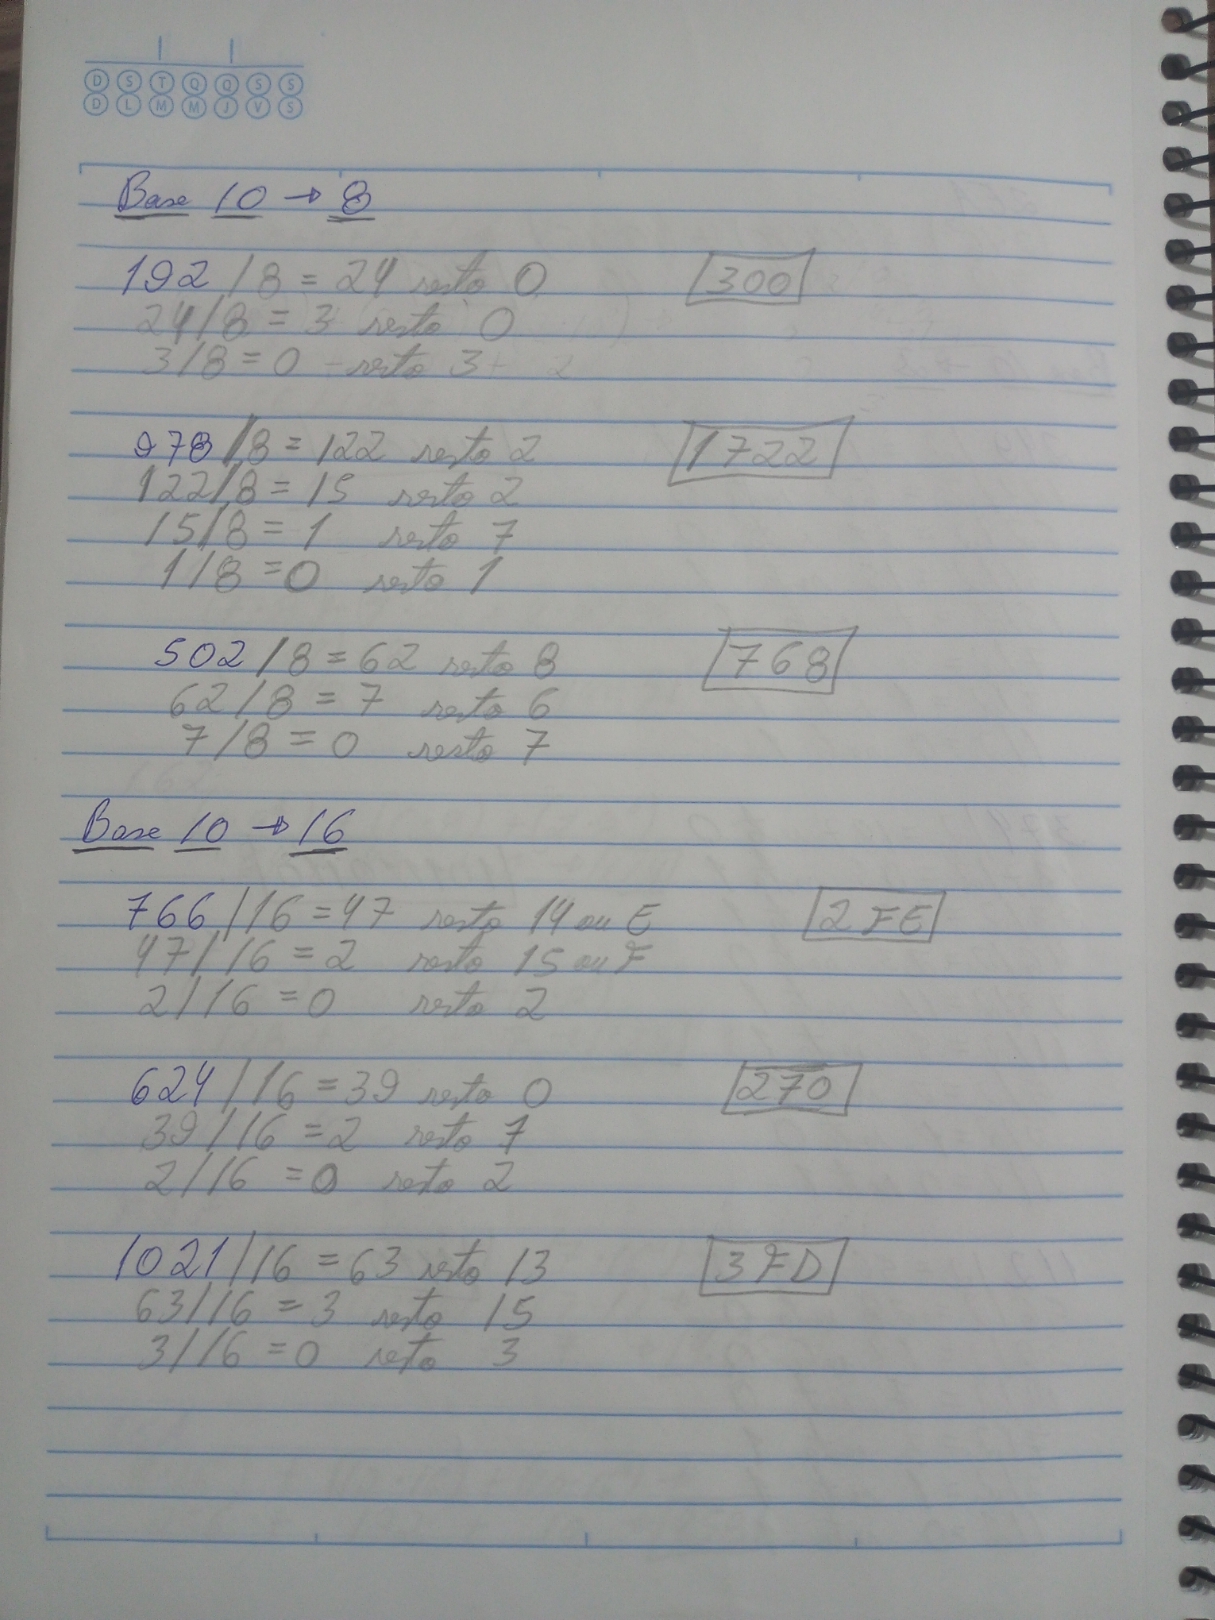 D S T Q Q S S
D L M M J V S
Base 10 → 8
192 / 8 = 24 resto 0 300
24/8 = 3 resto 0
3/8 = 0 resto 3
978 /8 = 122 resto 2 1722
122/8 = 15 resto 2
15/8 = 1 resto 7
1/8 = 0 resto 1
502 /8 = 62 resto 8 768
62/8 = 7 resto 6
7/8 = 0 resto 7
Base 10 → 16
766 /16 = 47 resto 14 ou E 2FE
47/16 = 2 resto 15 ou F
2/16 = 0 resto 2
624 /16 = 39 resto 0 270
39/16 = 2 resto 7
2/16 = 0 resto 2
1021 /16 = 63 resto 13 3FD
63/16 = 3 resto 15
3/16 = 0 reto 3